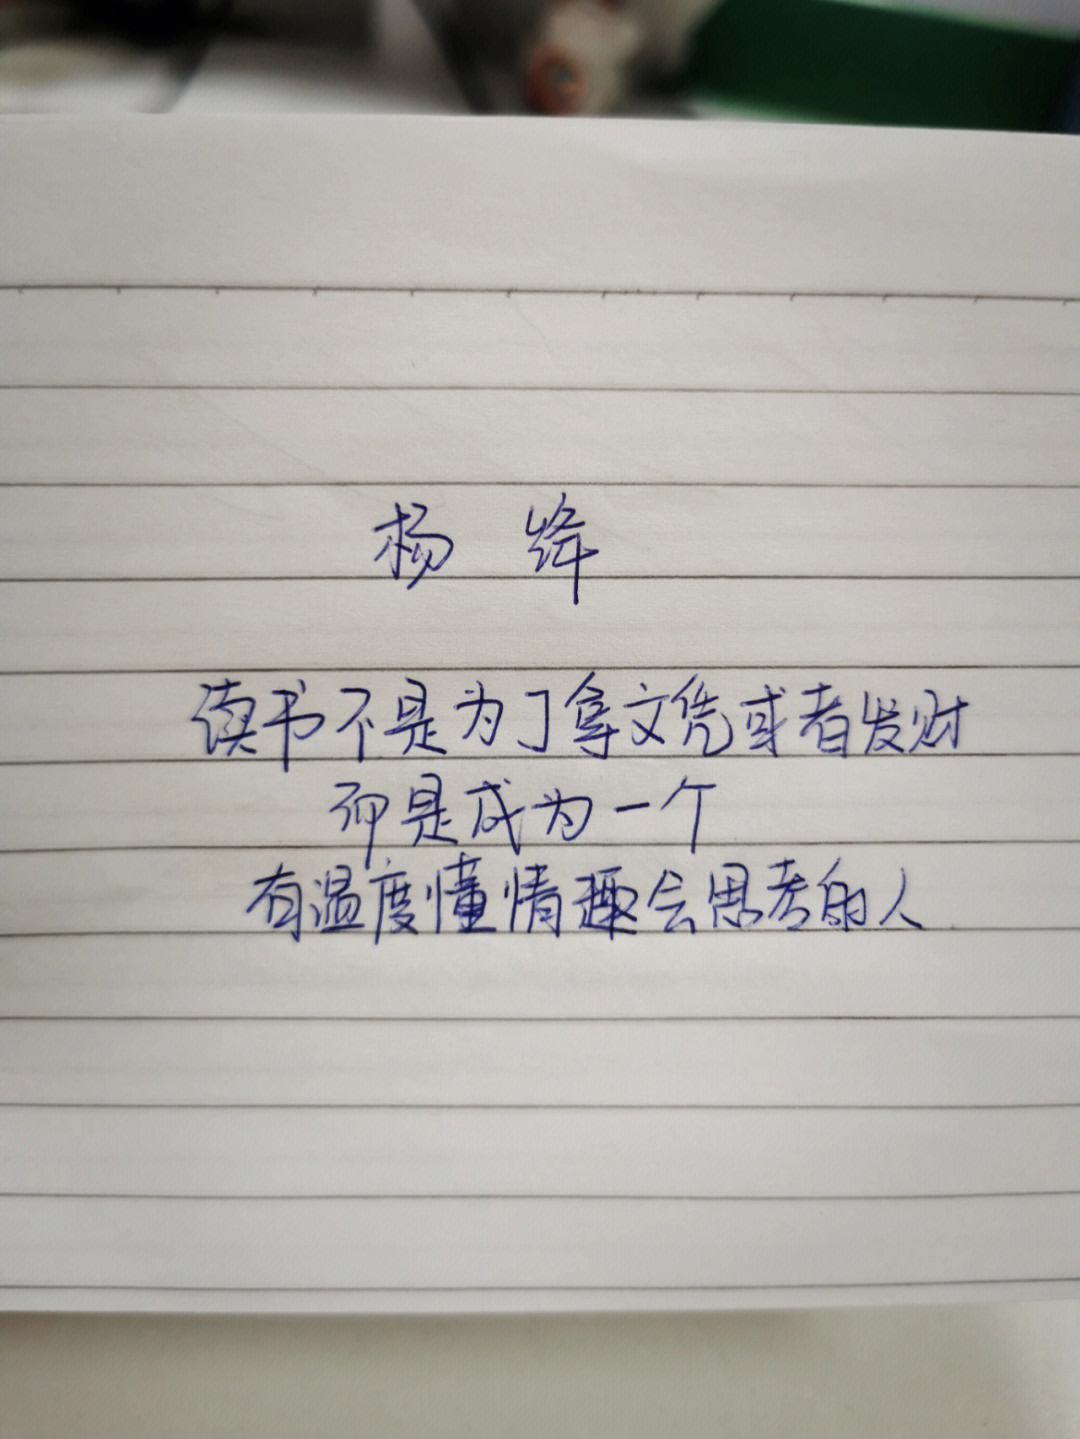 杨绛
读书不是为了拿文凭或者发财
而是成为一个
有温度懂情趣会思考的人